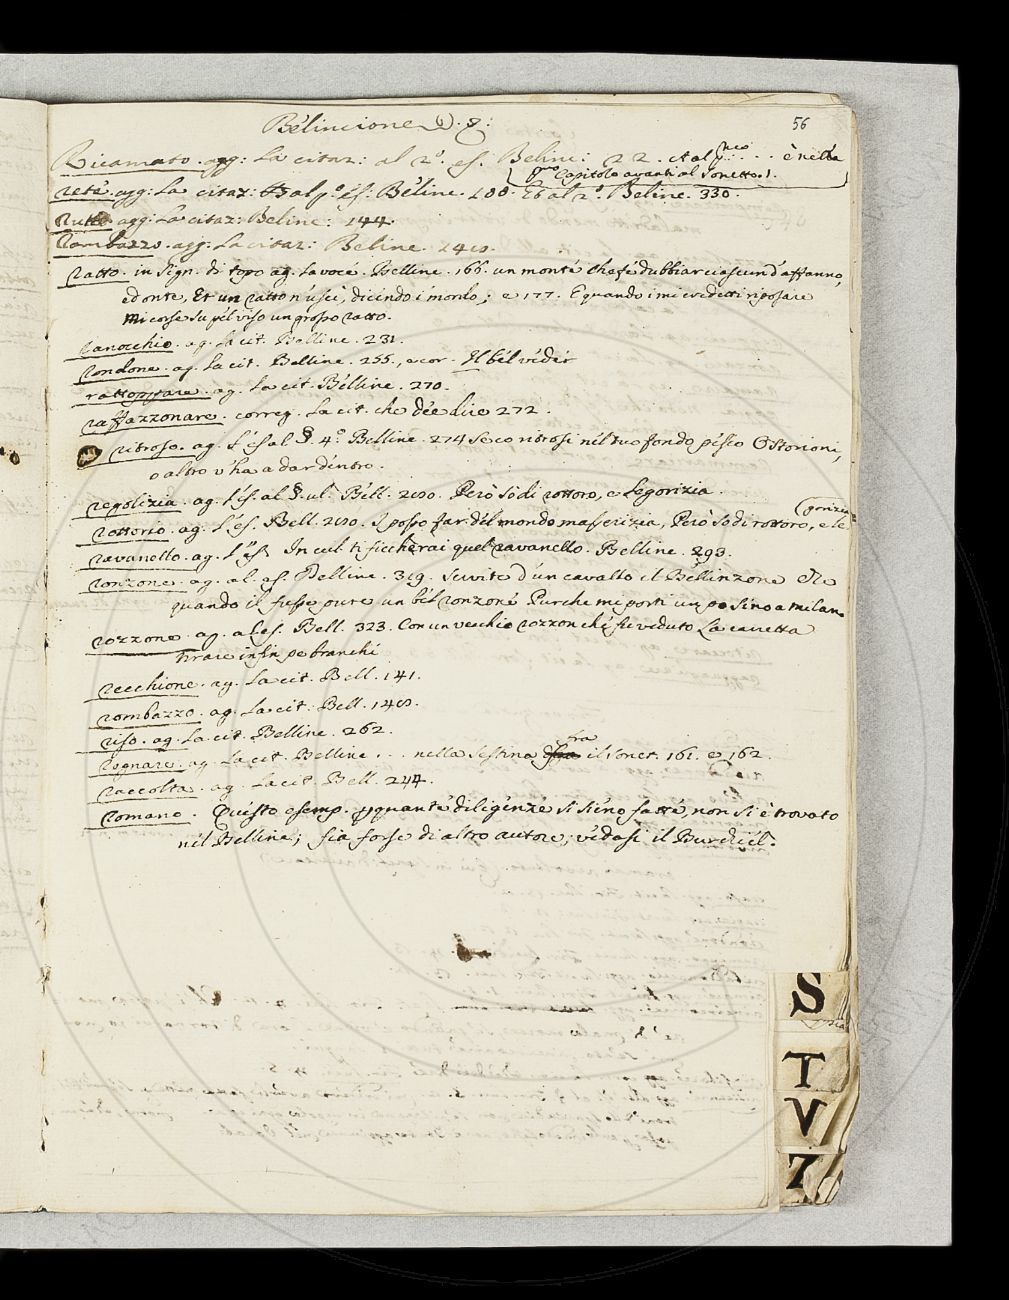 56
Belincione
Ricamato. agg: la citaz: al 2.º es. Belinc: 22. et al pmo ... è nello
pmo Capitolo avanti al Sonetto. 1.
rete. agg: la citaz: al pº es. Beline. 200. Et al 2.º Beline. 330.
agg: la citaz: Beline: 144.
rombazzo. agg: la citaz: Beline.
ratto. in sign. di topo ag. la voce. Belline. 166. un monte che fe' dubbiar ciascun d'affanno,
ed onte, Et un ratto n'uscì, dicendo i mondo; e 177. E quando i mi credetti riposare
mi corse su pel viso un grosso ratto.
ranocchio. ag. la cit. Belline. 231.
rondone. ag. la cit. Belline. 255., e cor. Il bel veder
rattoppare. ag. la cit. Belline. 270.
raffazzonare. correg. la cit. che dee dire 272.
ritroso. ag. l'es. al §. 4.º Belline. 274 Se co ritrosi nel tuo fondo pesco Ostorioni,
o altro v'ha a dar dentro.
regolizia. ag. l'es. al §. ul. Bell. Però so di rottoro, e legorizia.
rottorio. ag. l'es. Bell. I posso far del mondo masserizia, Però so di rottoro, e le
gorizia
ravanello. ag. l'es. In cul ti ficcherai quel ravanello. Belline. 293.
ronzone. ag. al. es. Belline. 319. Servite d'un cavallo il Bellinzone Che
quando il fusse pure un bel ronzone Purche mi porti un po sino a milan
rozzone. ag. al es. Bell. 323. Con un vecchio rozzon che fu veduto La carretta
tirare infin pe branchi
recchione. ag. la cit. Bell. 141.
rombazzo. ag. la cit. Bell.
riso. ag. la cit. Belline. 262.
rognare. ag. la cit. Belline ... nella sestina fra il sonet. 161. e 162.
raccolta. ag. la cit. Bell. 244.
romano. Questo esemp. pquante diligenze si sieno fatte, non si è trovato
nel Bellina; sia forse di altro autore; vedasi il Burchiel.
S
T
V
Z